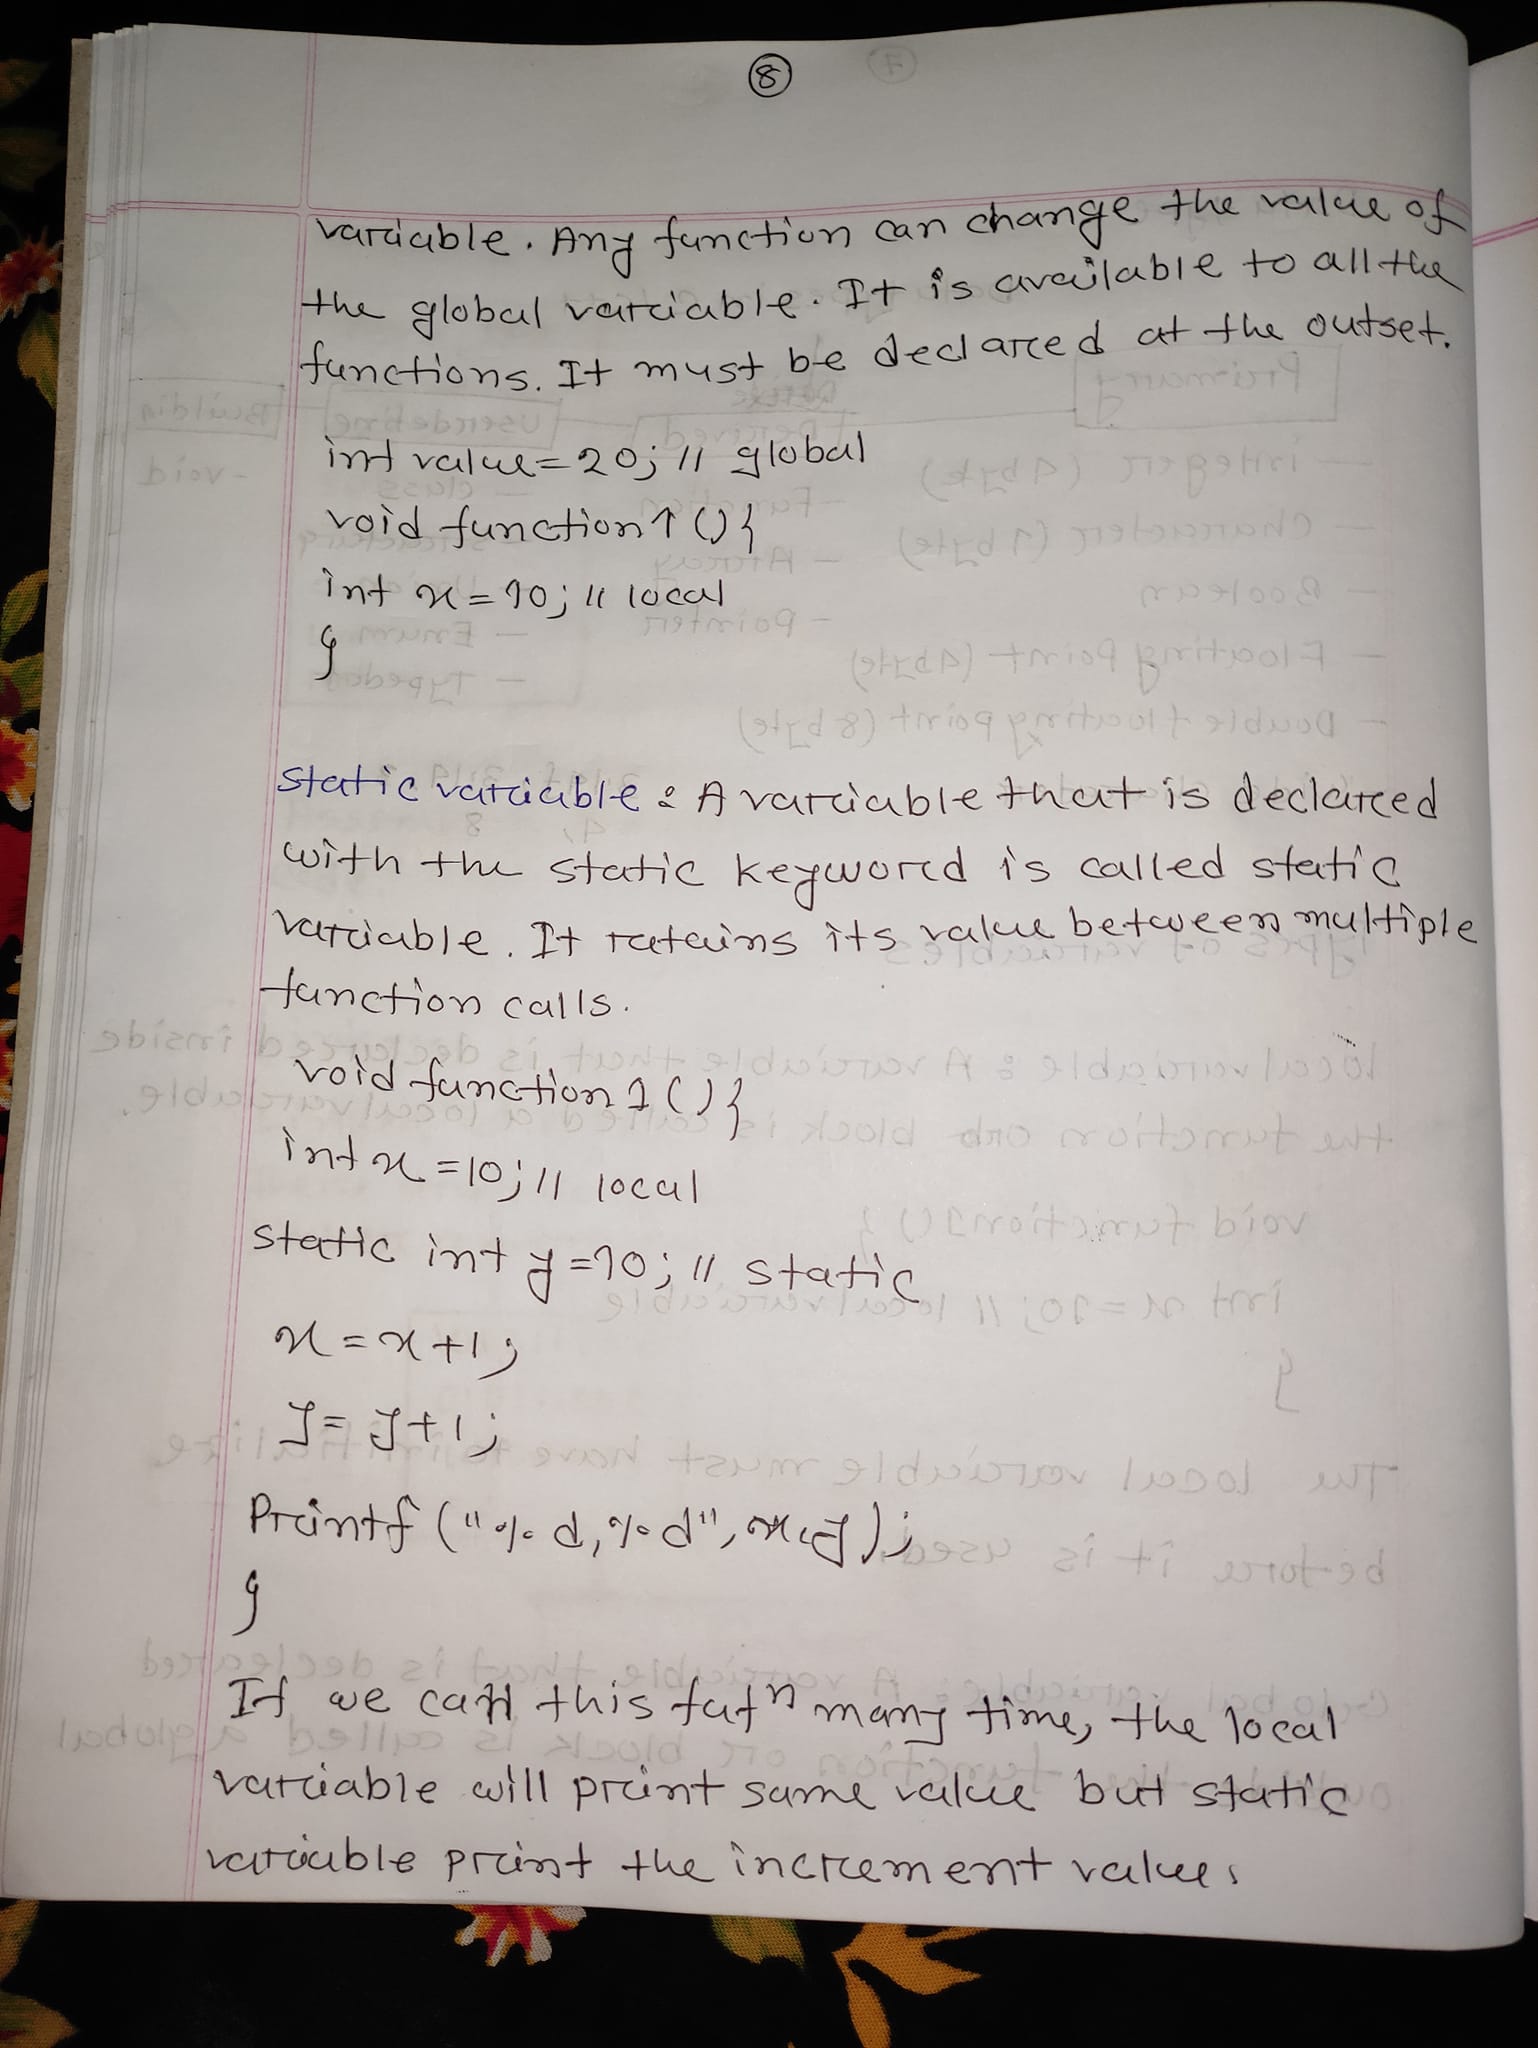 8
variable. Any function can change the value of
the global variable. It is available to all the
functions. It must be declared at the outset.
int value=20; // global
void function1(){
int x=10; // local
}
static variable: A variable that is declared
with the static keyword is called static
variable. It retains its value between multiple
function calls.
void function1(){
int x=10; // local
static int y=10; // static
x=x+1;
y=y+1;
Printf("%d,%d", x,y);
}
If we call this fuf^n many time, the local
variable will print same value but static
variable print the increment value.